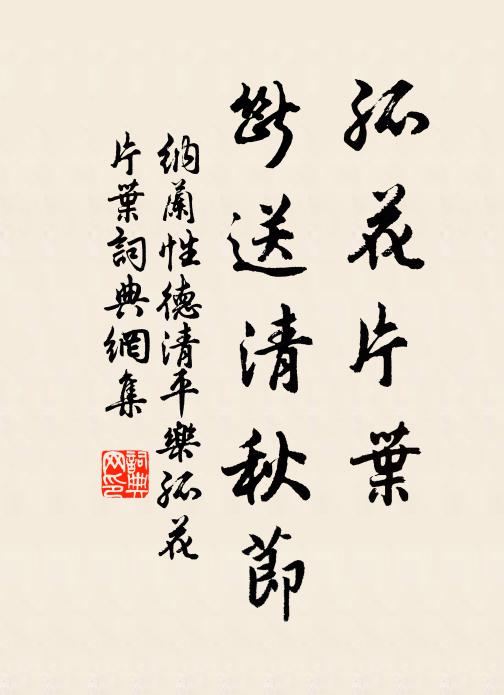 孤花片葉
斷送清秋節
納蘭性德清平樂孤花
片葉詞典網集
詞典
网印